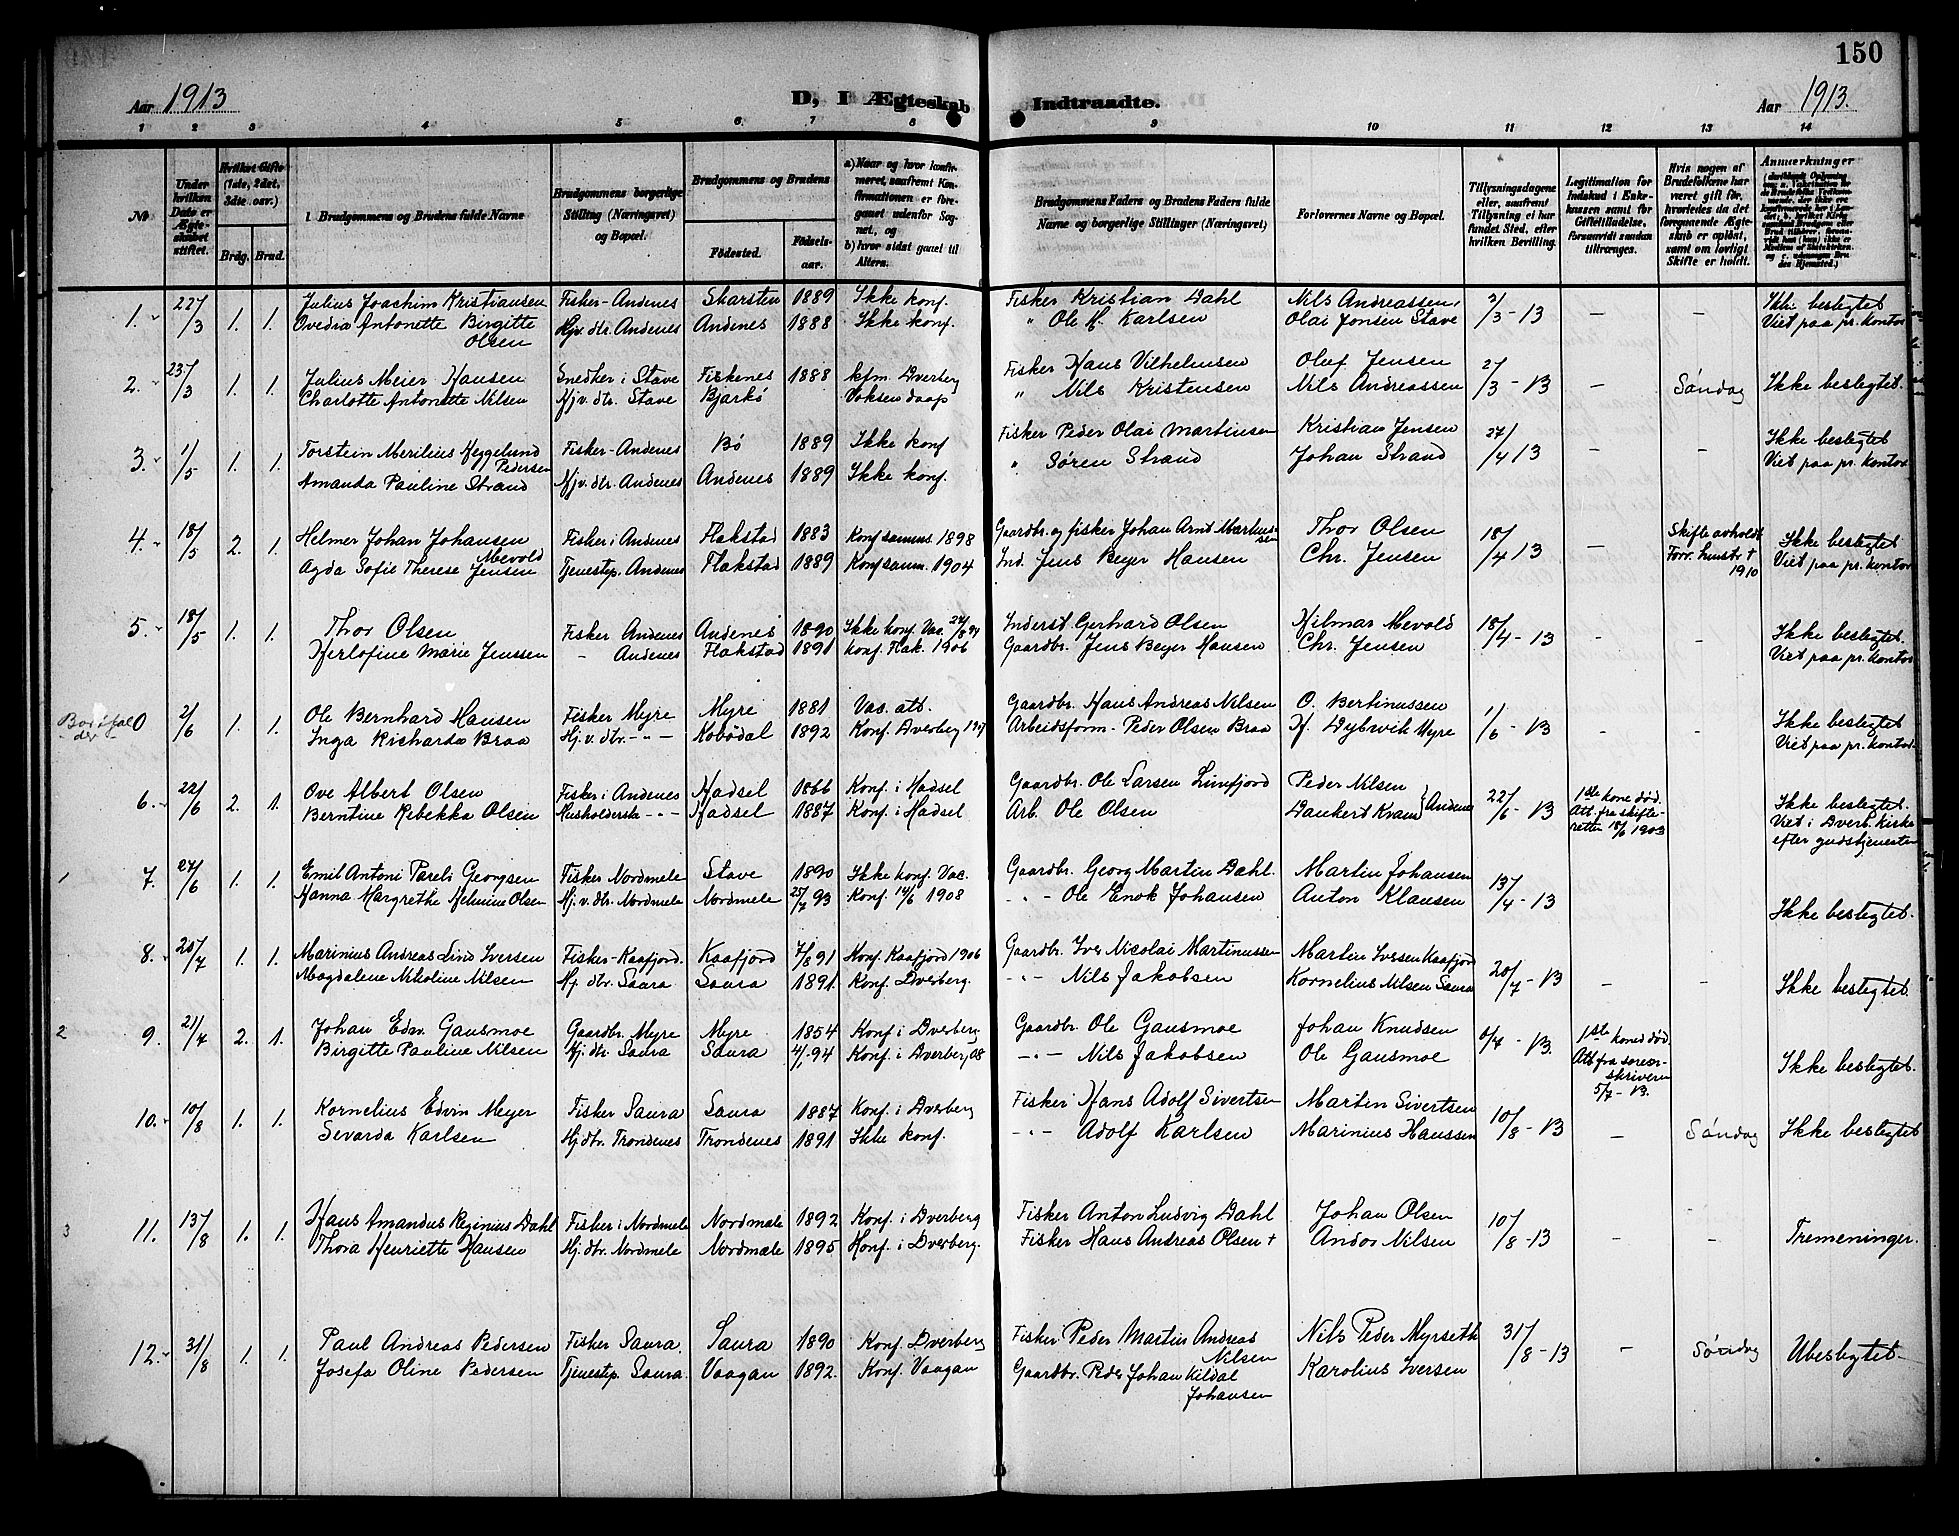 150
Aar 1913
D, I Ægteskab
Indtraadte.
Aar 1913.
1 2 3 4 5 6. 7 8 9 10 11 12 13 14
№
Under hvilken Dato er Ægteskabet stiftet.
Hvilket Gifte (1ste, 2det, 3die osv.)
Brdg. Brud.
Brudgommens og Brudens fulde Navne
Brudgommens borgerlige Stilling (Næringsvei) og Bopæl.
Brudgommens og Brudens
Fødested.
Fødselsaar.
a) Naar og hvor konfirmeret, saafremt Konfirmationen er foregaaet udenfor Sognet, og
b) hvor sidst gaaet til Alters.
Brudgommens Faders og Brudens Faders fulde Navne og borgerlige Stillinger (Næringsvei)
Forlovernes Navne og Bopæl.
Tillysningsdagene eller, saafremt Tillysning ei har fundet Sted, efter hvilken Bevilling.
Legitimation for Indskud i Enkekassen samt for Giftetilladelse, forsaavidt saadan tiltrænges.
Hvis nogen af Brudefolkene har været gift før, hvorledes da det foregaaende Ægteskab er opløst, samt om lovligt Skifte er holdt.
Anmærkninger
1. 22/3 1. 1. Julius Joachim Kristiansen Fisker-Andenes Skarsten 1889 Ikke konf. Fisker Kristian Dahl Nils Andreassen 2/3-13 – – Ikke beslegtet
Ovedia Antonette Birgitte Hjv. dtr. Andenes Andenes 1888 Ikke konf. " Ole H. Karlsen Olai Jonsen Stave Viet paa pr. kontor
Olsen
2. 23/3 1. 1. Julius Meier Hansen Snedker i Stave Fiskenes 1888 kfm. Dverberg Fisker Hans Vilhelmsen Oluf Jensen 27/3-13 – Søndag Ikke beslegtet.
Charlotte Antonette Nilsen Hjv. dtr. Stave Bjarkö Voksen daap " Nils Kristensen Nils Andreassen
3. 1/5 1. 1. Torstein Merilius Heggelund Fisker-Andenes Bö 1889 Ikke konf Fisker Peder Olai Martinsen Kristian Jensen 27/4 13 – – Ikke beslegtet
Pedersen
Amanda Pauline Strand Hjv. dtr. Andenes Andenes 1889 Ikke konf. " Søren Strand Johan Strand Viet paa pr. kontor
4. 18/5 2. 1. Helmer Johan Johansen Fisker i Andenes Flakstad 1883 Konf samms. 1898 Gaardbr. og fisker Johan Arnt Martinussen Thor Olsen 18/4 13 – Skifte avholdt Ikke beslegtet
Mevold
Agda Sofie Therese Jensen Tjenestep. Andenes Flakstad 1889 Konf samm. 1904 Ind. Jens Beyer Hansen Chr. Jensen Forr. hustr. † 1910 Viet paa pr. kontor
5. 18/5 1. 1. Thor Olsen Fisker Andenes Andenes 1890 Ikke konf. Vac. Inderst Gerhard Olsen Hilmar Mevold 18/4-13 – – Ikke beslegtet.
Herlofine Marie Jenssen – Andenes Flakstad 1891 konf. Flak. 1906 Gaardbr. Jens Beyer Hansen Chr. Jensen Viet paa pr. kontor
0 2/6 1. 1. Ole Bernhard Hansen Fisker Myre Myre 1881 Vac. att. Gaardbr. Hans Andreas Nilsen O. Bertinussen 1/6-13 – – Ikke beslegtet
Inga Richarda Braa Hj. v. dtr. -"- Kobödal 1892 Konf. Dverberg Arbeidsform. Peder Olsen Braa H. Dybvik Myre Viet paa pr. kontor.
6. 22/6 2. 1. Ove Albert Olsen Fisker i Andenes Hadsel 1866 Konf. i Hadsel Gaardbr. Ole Larsen Lunfjord Peder Nilsen 22/6-13 1ste kone död. Ikke beslegtet.
Berntine Rebekka Olsen Husholderske -"- Hadsel 1887 Konf. i Hadsel Arb. Ole Olsen Dankert Krane } Andenes Att. fra skifteretten 18/6 1903 Viet i Dverb. Kirke
efter gudstjenesten
7. 27/6 1. 1. Emil Antoni Parels Georgsen Fisker Nordmele Stave 1890 Ikke konf. Vac. Gaardbr. Georg Martin Dahl. Martin Johansen 13/4-13
Hanna Margrethe Helmine Olsen Hj. v. dtr. Nordmele Nordmele 25/7 93 Konf. 14/6 1908 -"- Ole Enok Johansen Anton Klausen Ikke beslegtet.
8. 20/7 1. 1. Marinius Andreas Lind Iversen Fisker-Kaafjord. Kaafjord 7/8 91 Konf. Kaafjord 1906 Gaardbr. Iver Nicolai Martinussen Martin Iversen Kaafjord 20/7-13 – – Ikke beslegtet.
Magdalene Nikoline Nilsen Hj. dtr. Saura Saura 1891. Konf. Dverberg. -"- Nils Jakobsen Kornelius Nilsen Saura
2 9. 21/7 2. 1. Johan Edv. Gausmoe Gaardbr. Myre Myre 1854 Konf. i Dverberg Gaardbr. Ole Gausmoe Johan Knudsen 6/7-13. 1ste kone död. Ikke beslegtet.
Birgitte Pauline Nilsen Hj. dtr. Saura Saura 4/1 94 Konf. i Dverberg 08 -"- Nils Jakobsen Ole Gausmoe Att fra sorenskriveren 5/7-13.
10. 10/8 1. 1. Kornelius Edvin Meyer Fisker Saura Saura 1887 Konf. i Dverberg Fisker Hans Adolf Sivertsen Martin Sivertsen 10/8-13 – Søndag Ikke beslegtet
Sevarda Karlsen Hj dtr. Trondenes Trondenes 1891 Ikke konf. -"- Adolf Karlsen Marinius Hanssen
3 11. 13/8 1. 1. Hans Amandus Reginius Dahl Fisker i Nordmele Nordmele 1892 Konf. i Dverberg Fisker Anton Ludvig Dahl Johan Olsen 10/8-13 – – Tremeninger.
Thora Henriette Hansen Hj. dtr. Nordmele Nordmele 1895. Konf. i Dverberg. Fisker Hans Andreas Olsen † Andor Nilsen
12. 31/8 1. 1. Paul Andreas Pedersen Fisker Saura. Saura 1890 Konf. Dverberg Fisker Peder Martin Andreas Nilsen Nils Peder Myrseth 31/8-13 – Søndag Ubeslegtet
Josefa Oline Pedersen Tjenestep. Saura. Vaagan 1892. Konf. Vaagan Gaardbr. Peder Johan Kildal Johansen Karolius Iversen